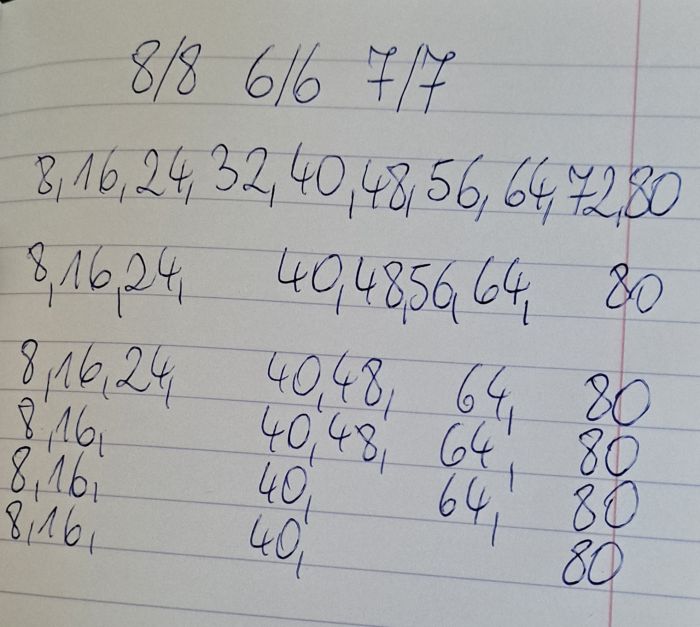 8/8 6/6 7/7
8,16,24,32,40,48,56,64,72,80
8,16,24, 40,48,56,64, 80
8,16,24, 40,48, 64, 80
8,16, 40,48, 64, 80
8,16, 40, 64, 80
8,16, 40, 80